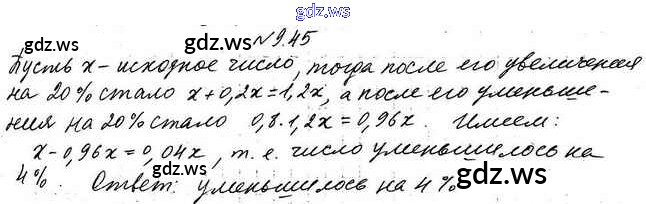 gdz.ws
gdz.ws №9.45 gdz.ws
Пусть x - исходное число, тогда после его увеличения
на 20% стало x+0,2x=1,2x, а после его уменьше-
ния на 20% стало 0,8·1,2x=0,96x. Имеем:
x-0,96x=0,04x, т.е. число уменьшилось на
4%. Ответ: уменьшилось на 4%
gdz.ws gdz.ws
gdz.ws